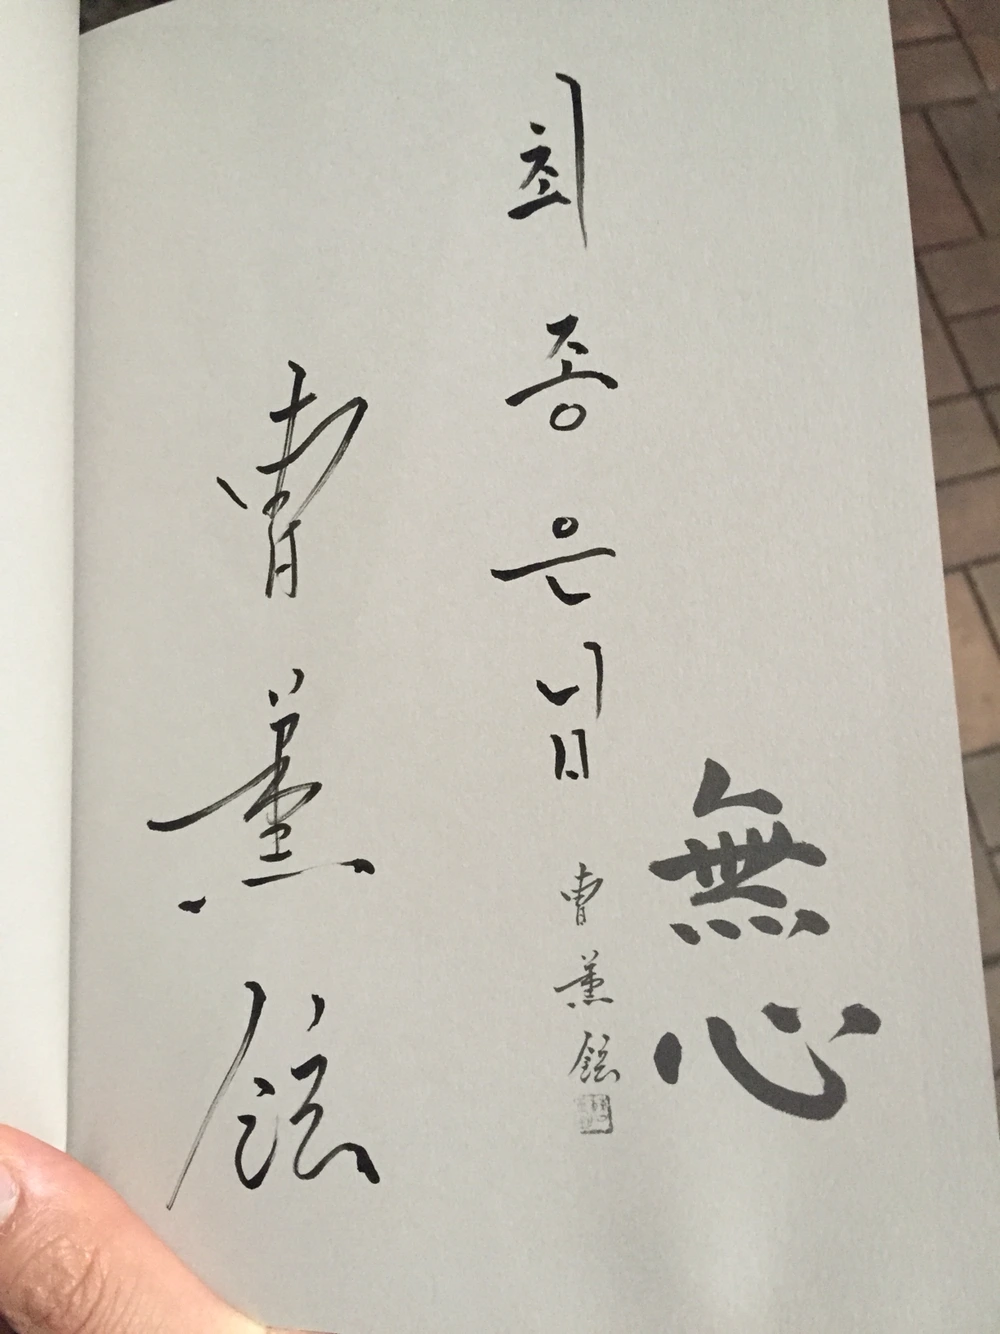 無心
최종은님
曺薰鉉
曺薰鉉